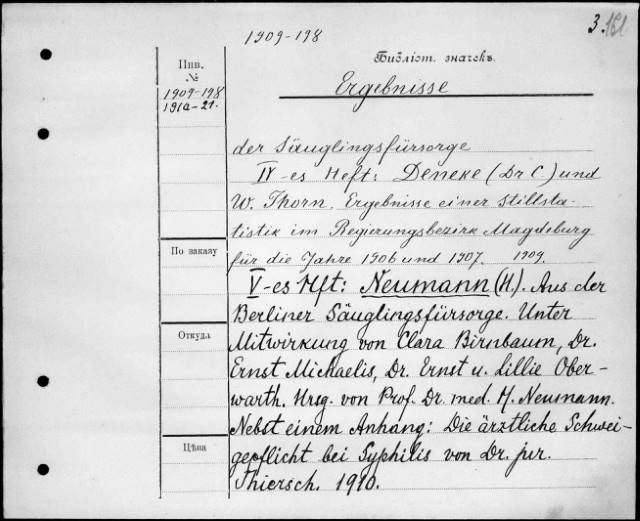 1909-198
3.
Инв.
№
Библіот. значекъ.
1909-198
1910-21.
Ergebnisse
der Säuglingsfürsorge
IV-es Heft: Deneke (Dr C) und
W. Thorn. Ergebnisse einer Stillsta-
tistik im Regierungsbezirk Magdeburg
По заказу
für die Jahre 1906 und 1907. 1909.
V-es Hft: Neumann (H). Aus der
Berliner Säuglingsfürsorge. Unter
Откуда
Mitwirkung von Clara Birnbaum, Dr.
Ernst Michaelis, Dr. Ernst u. Lillie Ober-
warth. Hrsg. von Prof. Dr. med. H. Neumann.
Nebst einem Anhang: Die ärztliche Schwei-
Цѣна
gepflicht bei Syphilis von Dr. jur.
Thiersch. 1910.